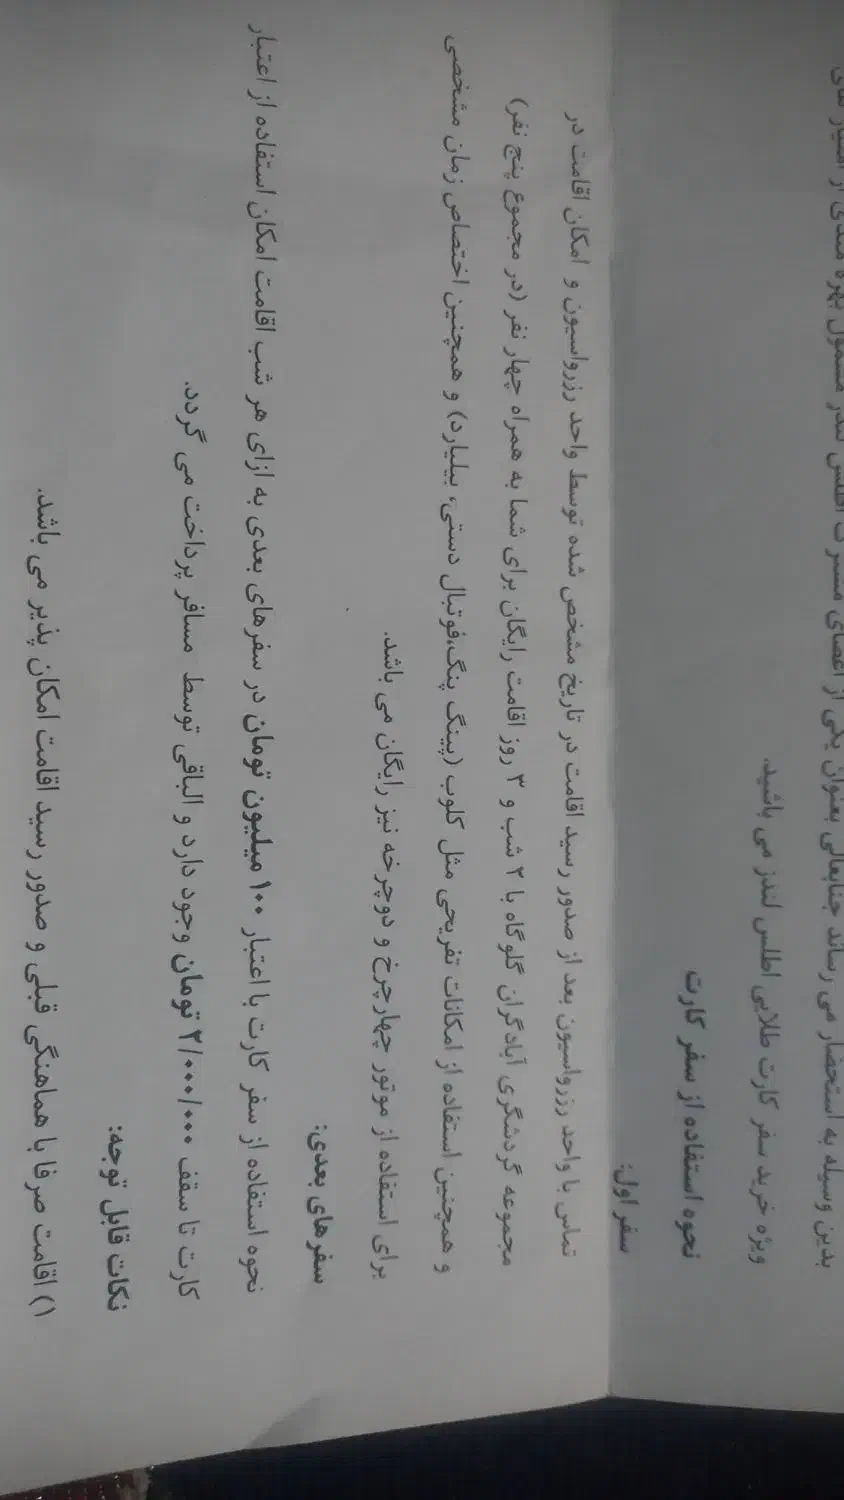 بدین وسیله به استحضار می رساند جنابعالی بعنوان یکی از اعضای مشترک اطلس لندز مشمول بهره مندی از امتیاز های
ویژه خرید سفر کارت طلایی اطلس لندز می باشید.
نحوه استفاده از سفر کارت
سفر اول:
تماس با واحد رزرواسیون بعد از صدور رسید اقامت در تاریخ مشخص شده توسط واحد رزرواسیون و امکان اقامت در
مجموعه گردشگری آبادگران گلوگاه با ۲ شب و ۳ روز اقامت رایگان برای شما به همراه چهار نفر (در مجموع پنج نفر)
و همچنین استفاده از امکانات تفریحی مثل کلوب (پینگ پنگ،فوتبال دستی، بیلیارد) و همچنین اختصاص زمان مشخصی
برای استفاده از موتور چهارچرخ و دوچرخه نیز رایگان می باشد.
سفرهای بعدی:
نحوه استفاده از سفر کارت با اعتبار ۱۰۰ میلیون تومان در سفرهای بعدی به ازای هر شب اقامت امکان استفاده از اعتبار
کارت تا سقف ۲/۰۰۰/۰۰۰ تومان وجود دارد و الباقی توسط مسافر پرداخت می گردد.
نکات قابل توجه:
۱) اقامت صرفا با هماهنگی قبلی و صدور رسید اقامت امکان پذیر می باشد.